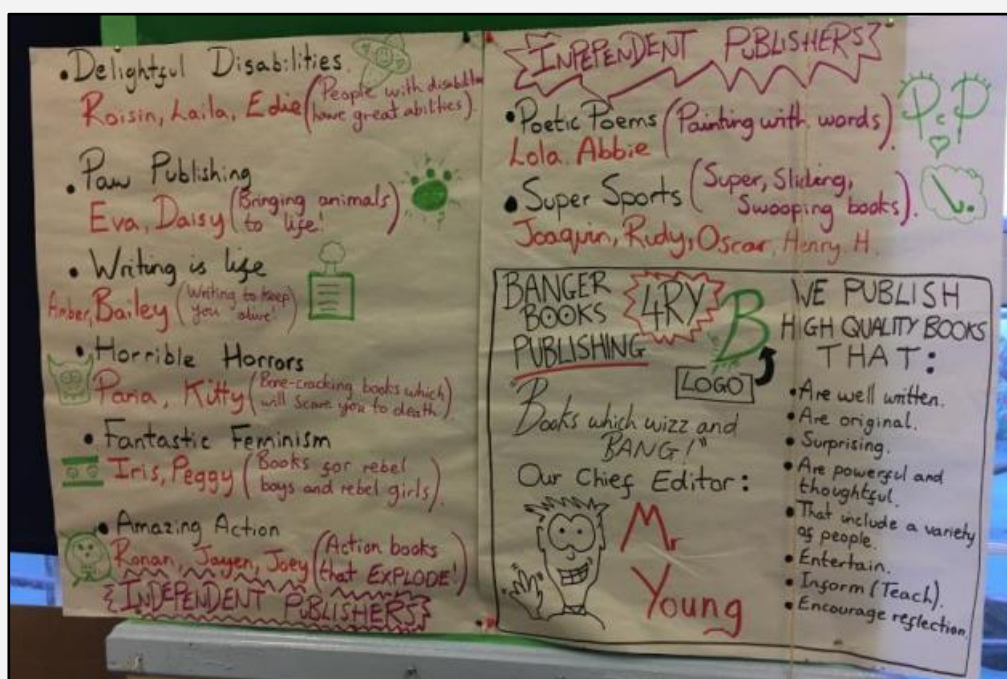 • Delightful Disabilities.
Roisin, Laila, Edie (People with disabilities
have great abilties).
• Paw Publishing
Eva, Daisy (Bringing animals
to life!)
• Writing is life
Amber, Bailey (Writing to keep
you alive!)
• Horrible Horrors
Paria, Kitty (Bone-cracking books which
will scare you to death).
• Fantastic Feminism
Iris, Peggy (Books for rebel
boys and rebel girls).
• Amazing Action
Ronan, Jayen, Joey (Action books
that EXPLODE!)
INDEPENDENT PUBLISHERS
INDEPENDENT PUBLISHERS
• Poetic Poems (Painting with words).
Lola, Abbie
PcP
• Super Sports (Super, Sliding,
Swooping books).
Joaquin, Rudy, Oscar, Henry. H.
BANGER
BOOKS
PUBLISHING
4RY
B
LOGO
"Books which wizz and
BANG!"
Our Chief Editor:
Mr
Young
WE PUBLISH
HIGH QUALITY BOOKS
THAT:
• Are well written.
• Are original.
• Surprising.
• Are powerful and
thoughtful.
• That include a variety
of people.
• Entertain.
• Inform (Teach).
• Encourage reflection.